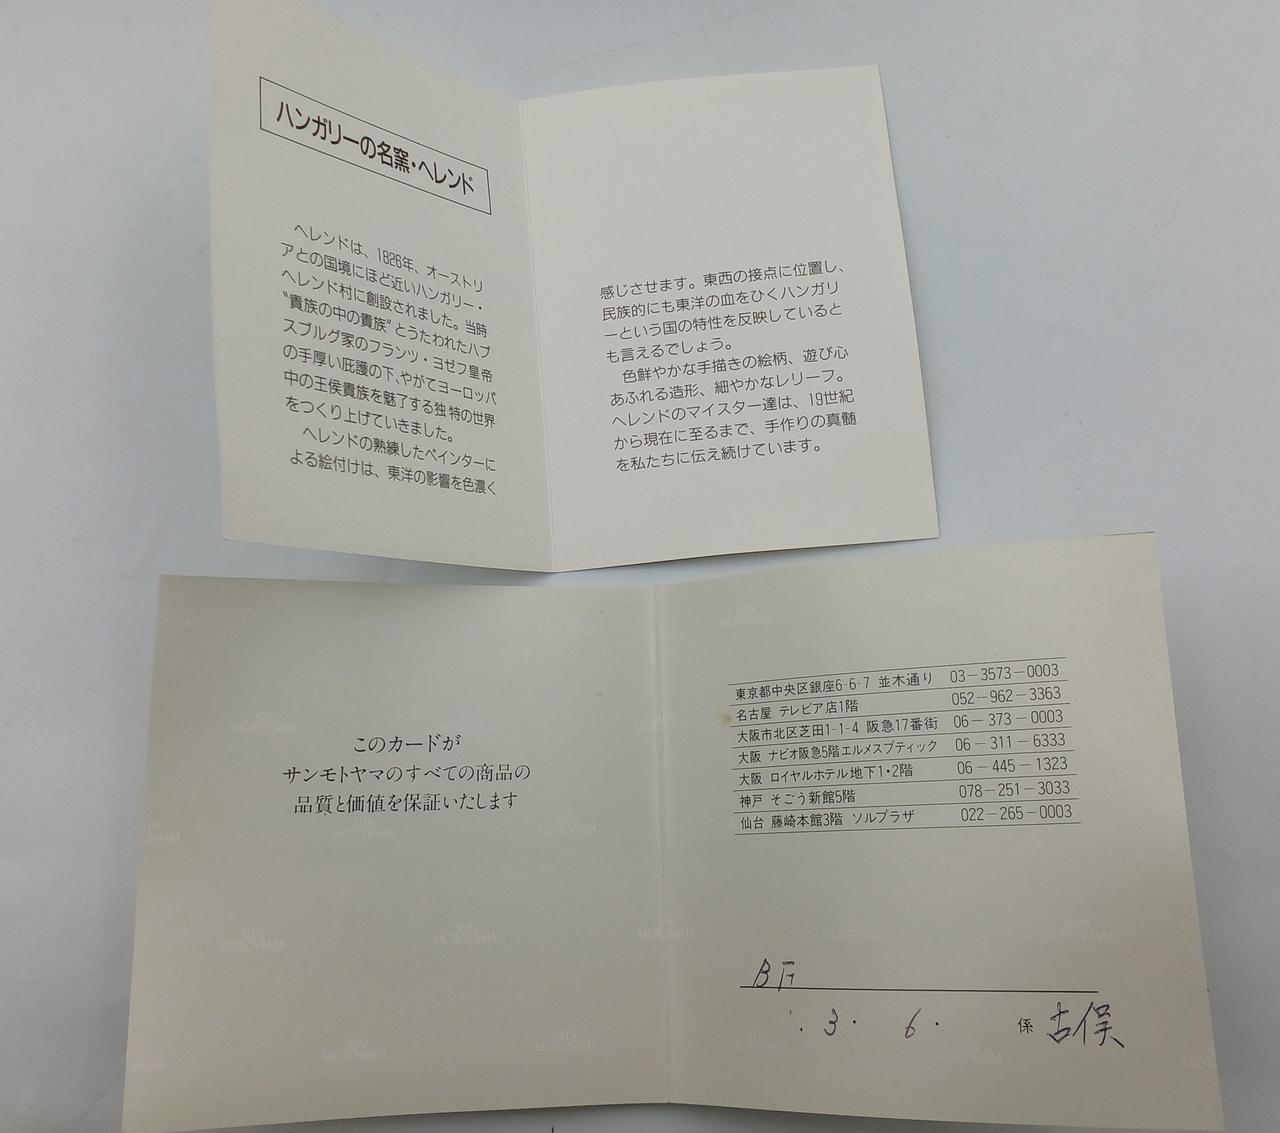 ハンガリーの名窯・ヘレンド
ヘレンドは、1826年、オーストリ
アとの国境にほど近いハンガリー・
ヘレンド村に創設されました。当時
“貴族の中の貴族”とうたわれたハプ
スブルグ家のフランツ・ヨゼフ皇帝
の手厚い庇護の下、やがてヨーロッパ
中の王侯貴族を魅了する独特の世界
をつくり上げていきました。
ヘレンドの熟練したペインターに
よる絵付けは、東洋の影響を色濃く
感じさせます。東西の接点に位置し、
民族的にも東洋の血をひくハンガリ
ーという国の特性を反映していると
も言えるでしょう。
色鮮やかな手描きの絵柄、遊び心
あふれる造形、細やかなレリーフ。
ヘレンドのマイスター達は、19世紀
から現在に至るまで、手作りの真髄
を私たちに伝え続けています。
このカードが
サンモトヤマのすべての商品の
品質と価値を保証いたします
SUN
MOTOYAMA
東京都中央区銀座6-6-7 並木通り 03-3573-0003
名古屋 テレビア店1階 052-962-3363
大阪市北区芝田1-1-4 阪急17番街 06-373-0003
大阪 ナビオ阪急5階エルメスブティック 06-311-6333
大阪 ロイヤルホテル地下1・2階 06-445-1323
神戸 そごう新館5階 078-251-3033
仙台 藤崎本館3階 ソルプラザ 022-265-0003
. 3. 6.
係 古俣